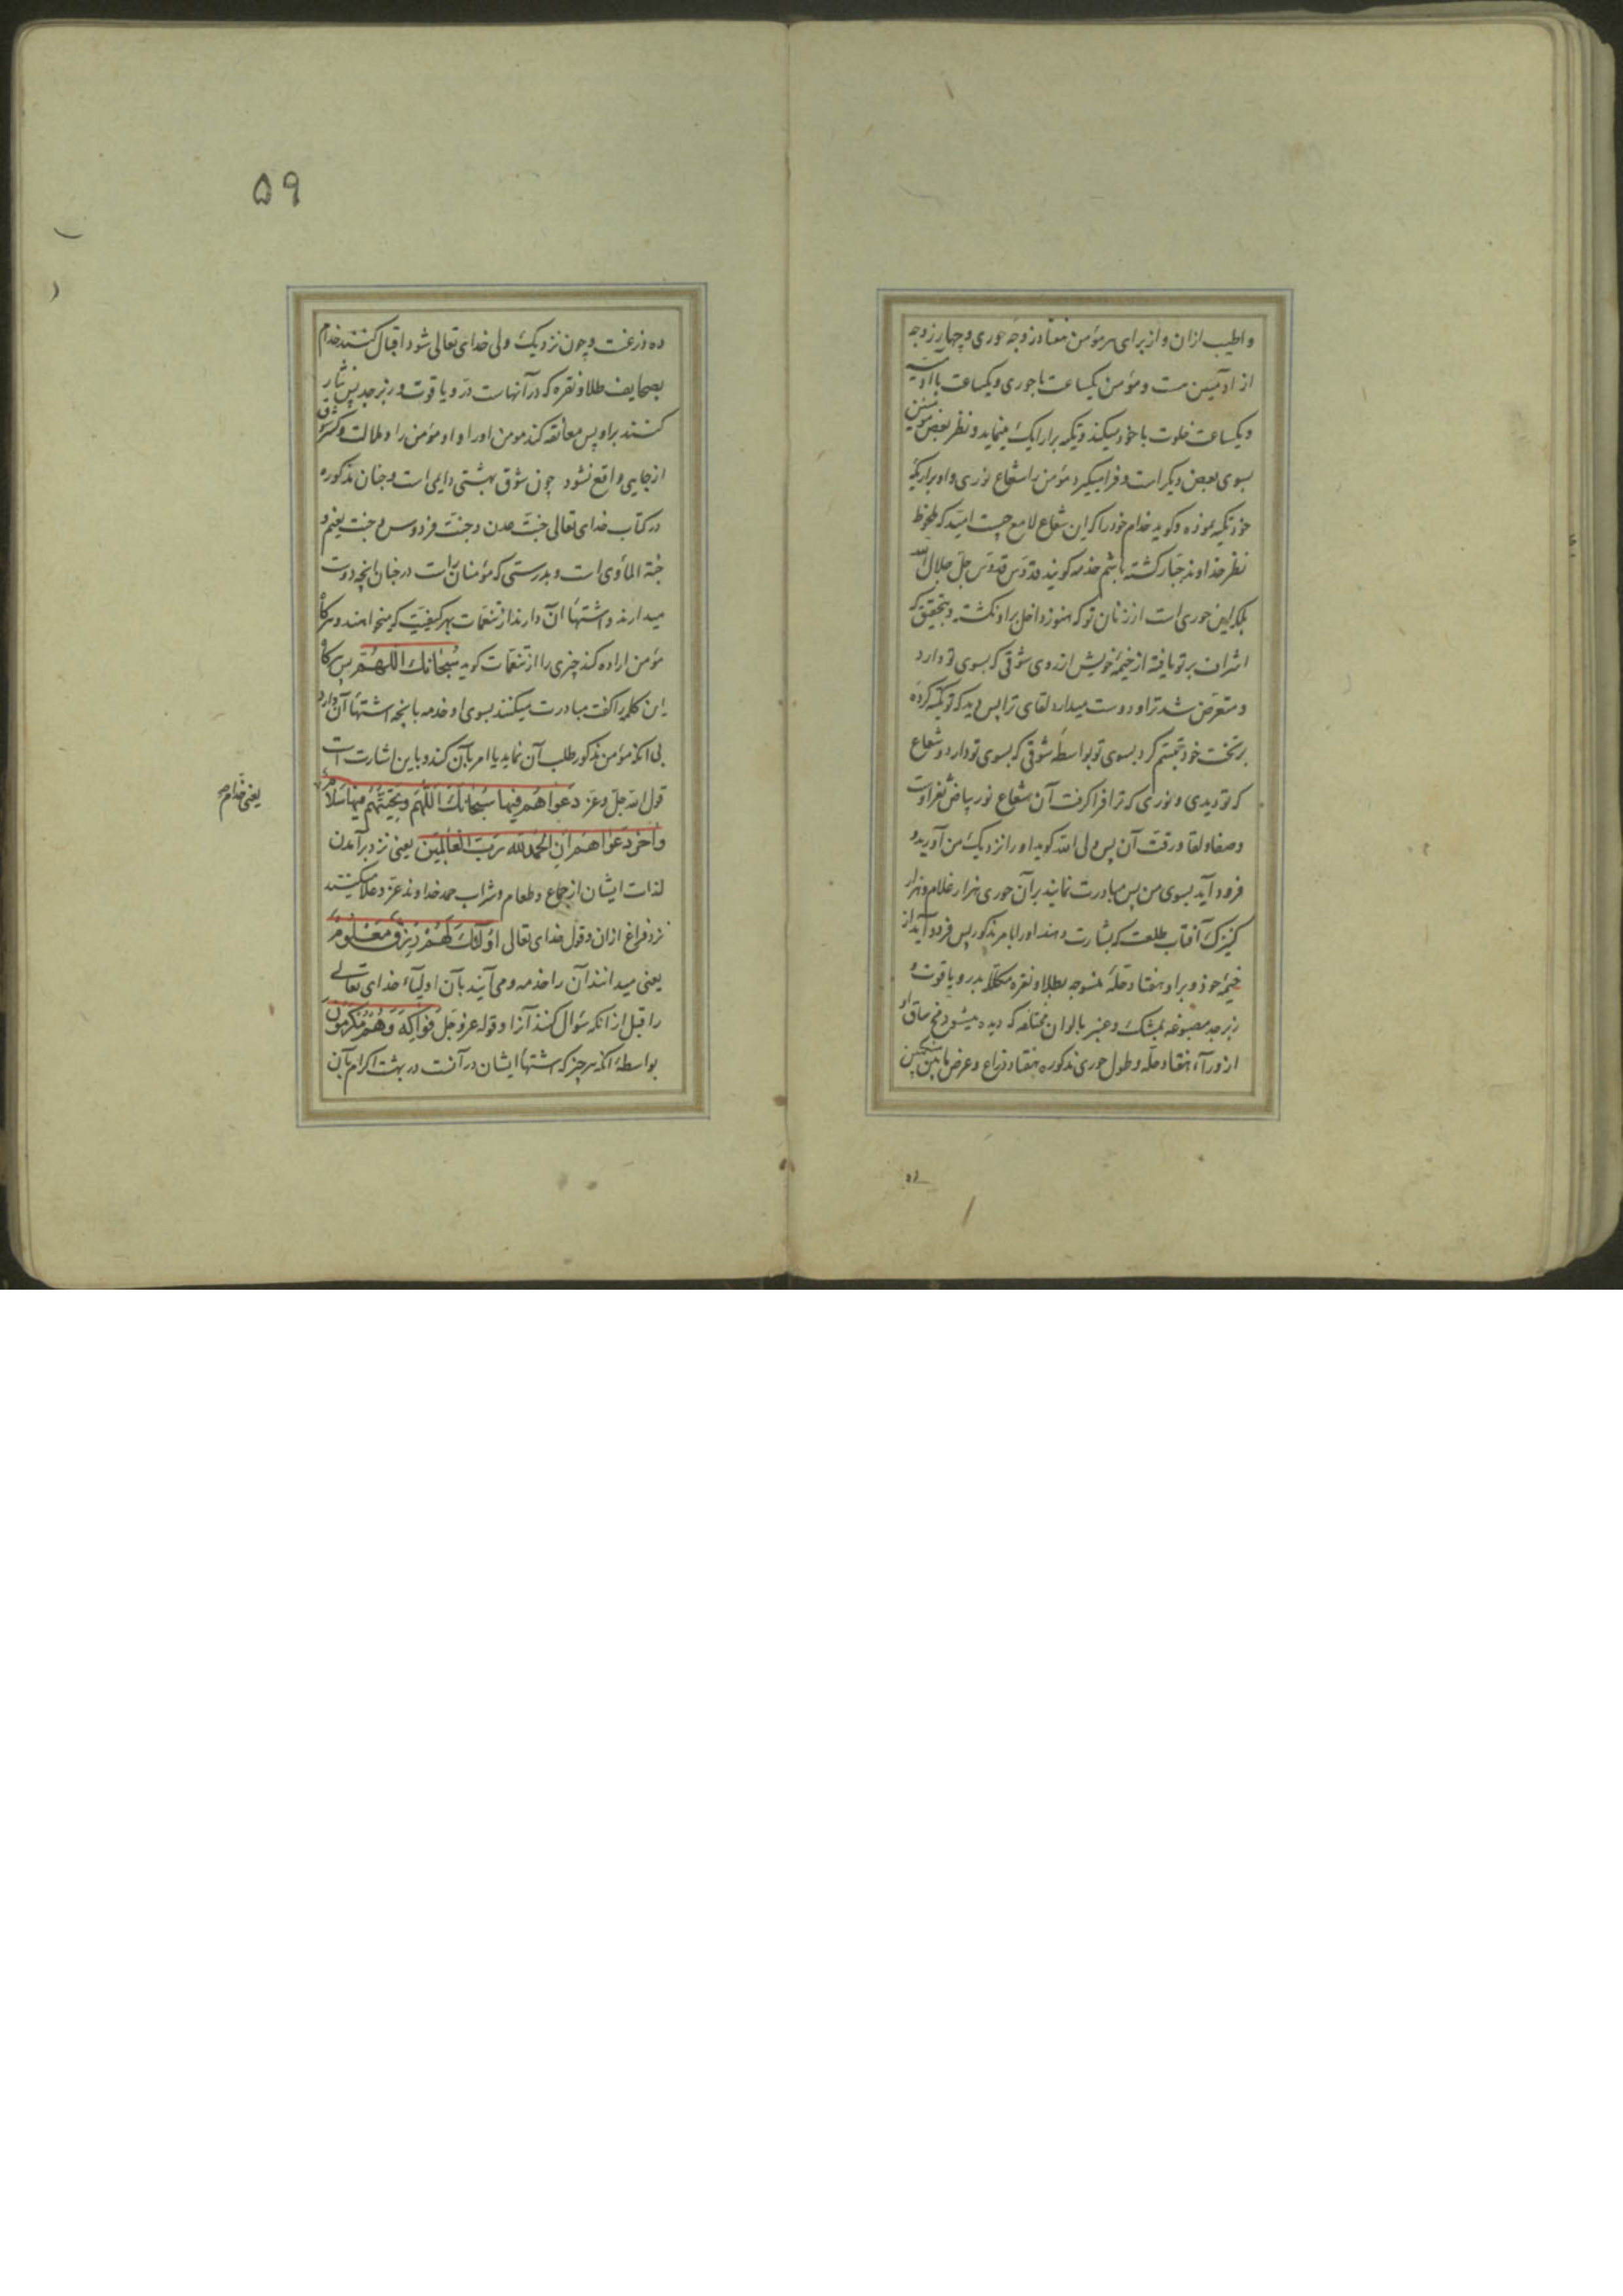 و اطیب ازان و از برای هر مؤمن هفتاد زوجه حوری و چهار زوجه
از ادمیین هست و مؤمن یکساعت با حوری و یکساعت با آدمیه
و یکساعت خلوت با خود میکند و تکیه بر ارایک مینماید و نظر بعض مؤمنین
بسوی بعض دیکر است و فرا میکیرد مؤمن را شعاع نوری و او بر اریکهٔ
خود تکیه نموده و کوید خدام خود را که این شعاع لامع چیست که ملحوظ
نظر خداوند جبار کشته باشم خدمه کویند قدوس قدوس جل جلال الله
بلکه این حوری است از زنان تو که هنوز داخل بر او نکشته و بتحقیق که
اشراف بر تو یافته از خیمهٔ خویش از روی شوقی که بسوی تو دارد
و متعرض شد ترا و دوست میدارد لقای ترا پس دید که تو تکیه کرده
بر تخت خود تبسم کرد بسوی تو بواسطهٔ شوقی که بسوی تو دارد و شعاع
که تو دیدی و نوری که ترا فرا کرفت آن شعاع نور بیاض ثغر اوست
و صفا و لقا و رقت آن پس ولی الله کوید او را نزدیک من آورید و
فرود آید بسوی من پس مبادرت نمایند بر آن حوری هزار غلام و هزار
کنیزک آفتاب طلعت که بشارت دهند او را بامر مذکور پس فرود آید از
خیمهٔ خود و بر او هفتاد حلهٔ منسوجه بطلا و نقره مکلله بدر و یاقوت و
زبرجد مصبوغه بمشک و عنبر بالوان مختلفه که دیده میشود مخ ساق او
از ورآء هفتاد حله و طول حوری مذکوره هفتاد ذراع و عرض ما بین منکبین
ده
۵۹
ده ذرعست و چون نزدیک ولی خدای تعالی شود اقبال کنند خدام
بصحایف طلا و نقره که در آنهاست در و یاقوت و زبرجد پس نثار
کنند بر او پس معانقه کند مومن او را و او مؤمن را و ملالت و کسر شوق
از جایی واقع نشود چون شوق بهشتی دایمی است و جنان مذکوره
در کتاب خدای تعالی جنت عدن و جنت فردوس و جنت نعیم و
جنة المأوی است و بدرستی که مؤمنان راست در جنان انچه دوست
میدارند و اشتهاء آن دارند از تنعمات بهر کیفیت که میخواهند و هر کاه
مؤمن اراده کند چیزی را از تنعمات کوید سبحانك اللهم پس هر کاه
این کلمه را کفت مبادرت میکنند بسوی او خدمه بانچه اشتهاء آن دارد
بی انکه مؤمن مذکور طلب آن نماید یا امر بآن کند و باین اشارت است
قول الله جل و عز دعواهم فیها سبحانك اللهم و تحیتهم فیها سلام
یعنی خدام
و اخر دعواهم ان الحمد لله رب العالمین یعنی نزد برآمدن
لذات ایشان از جماع و طعام و شراب حمد خداوند عز و علا میکنند
نزد فراغ ازان و قول خدای تعالی اولئك لهم رزق معلوم
یعنی میدانند آن را خدمه و می آیند بآن اولیآء خدای تعالی
را قبل از انکه سؤال کنند آنرا و قوله عز و جل فواکه و هم مکرمون
بواسطهٔ انکه هر چیز که اشتهاء ایشان در آنست در بهشت اکرام بآن